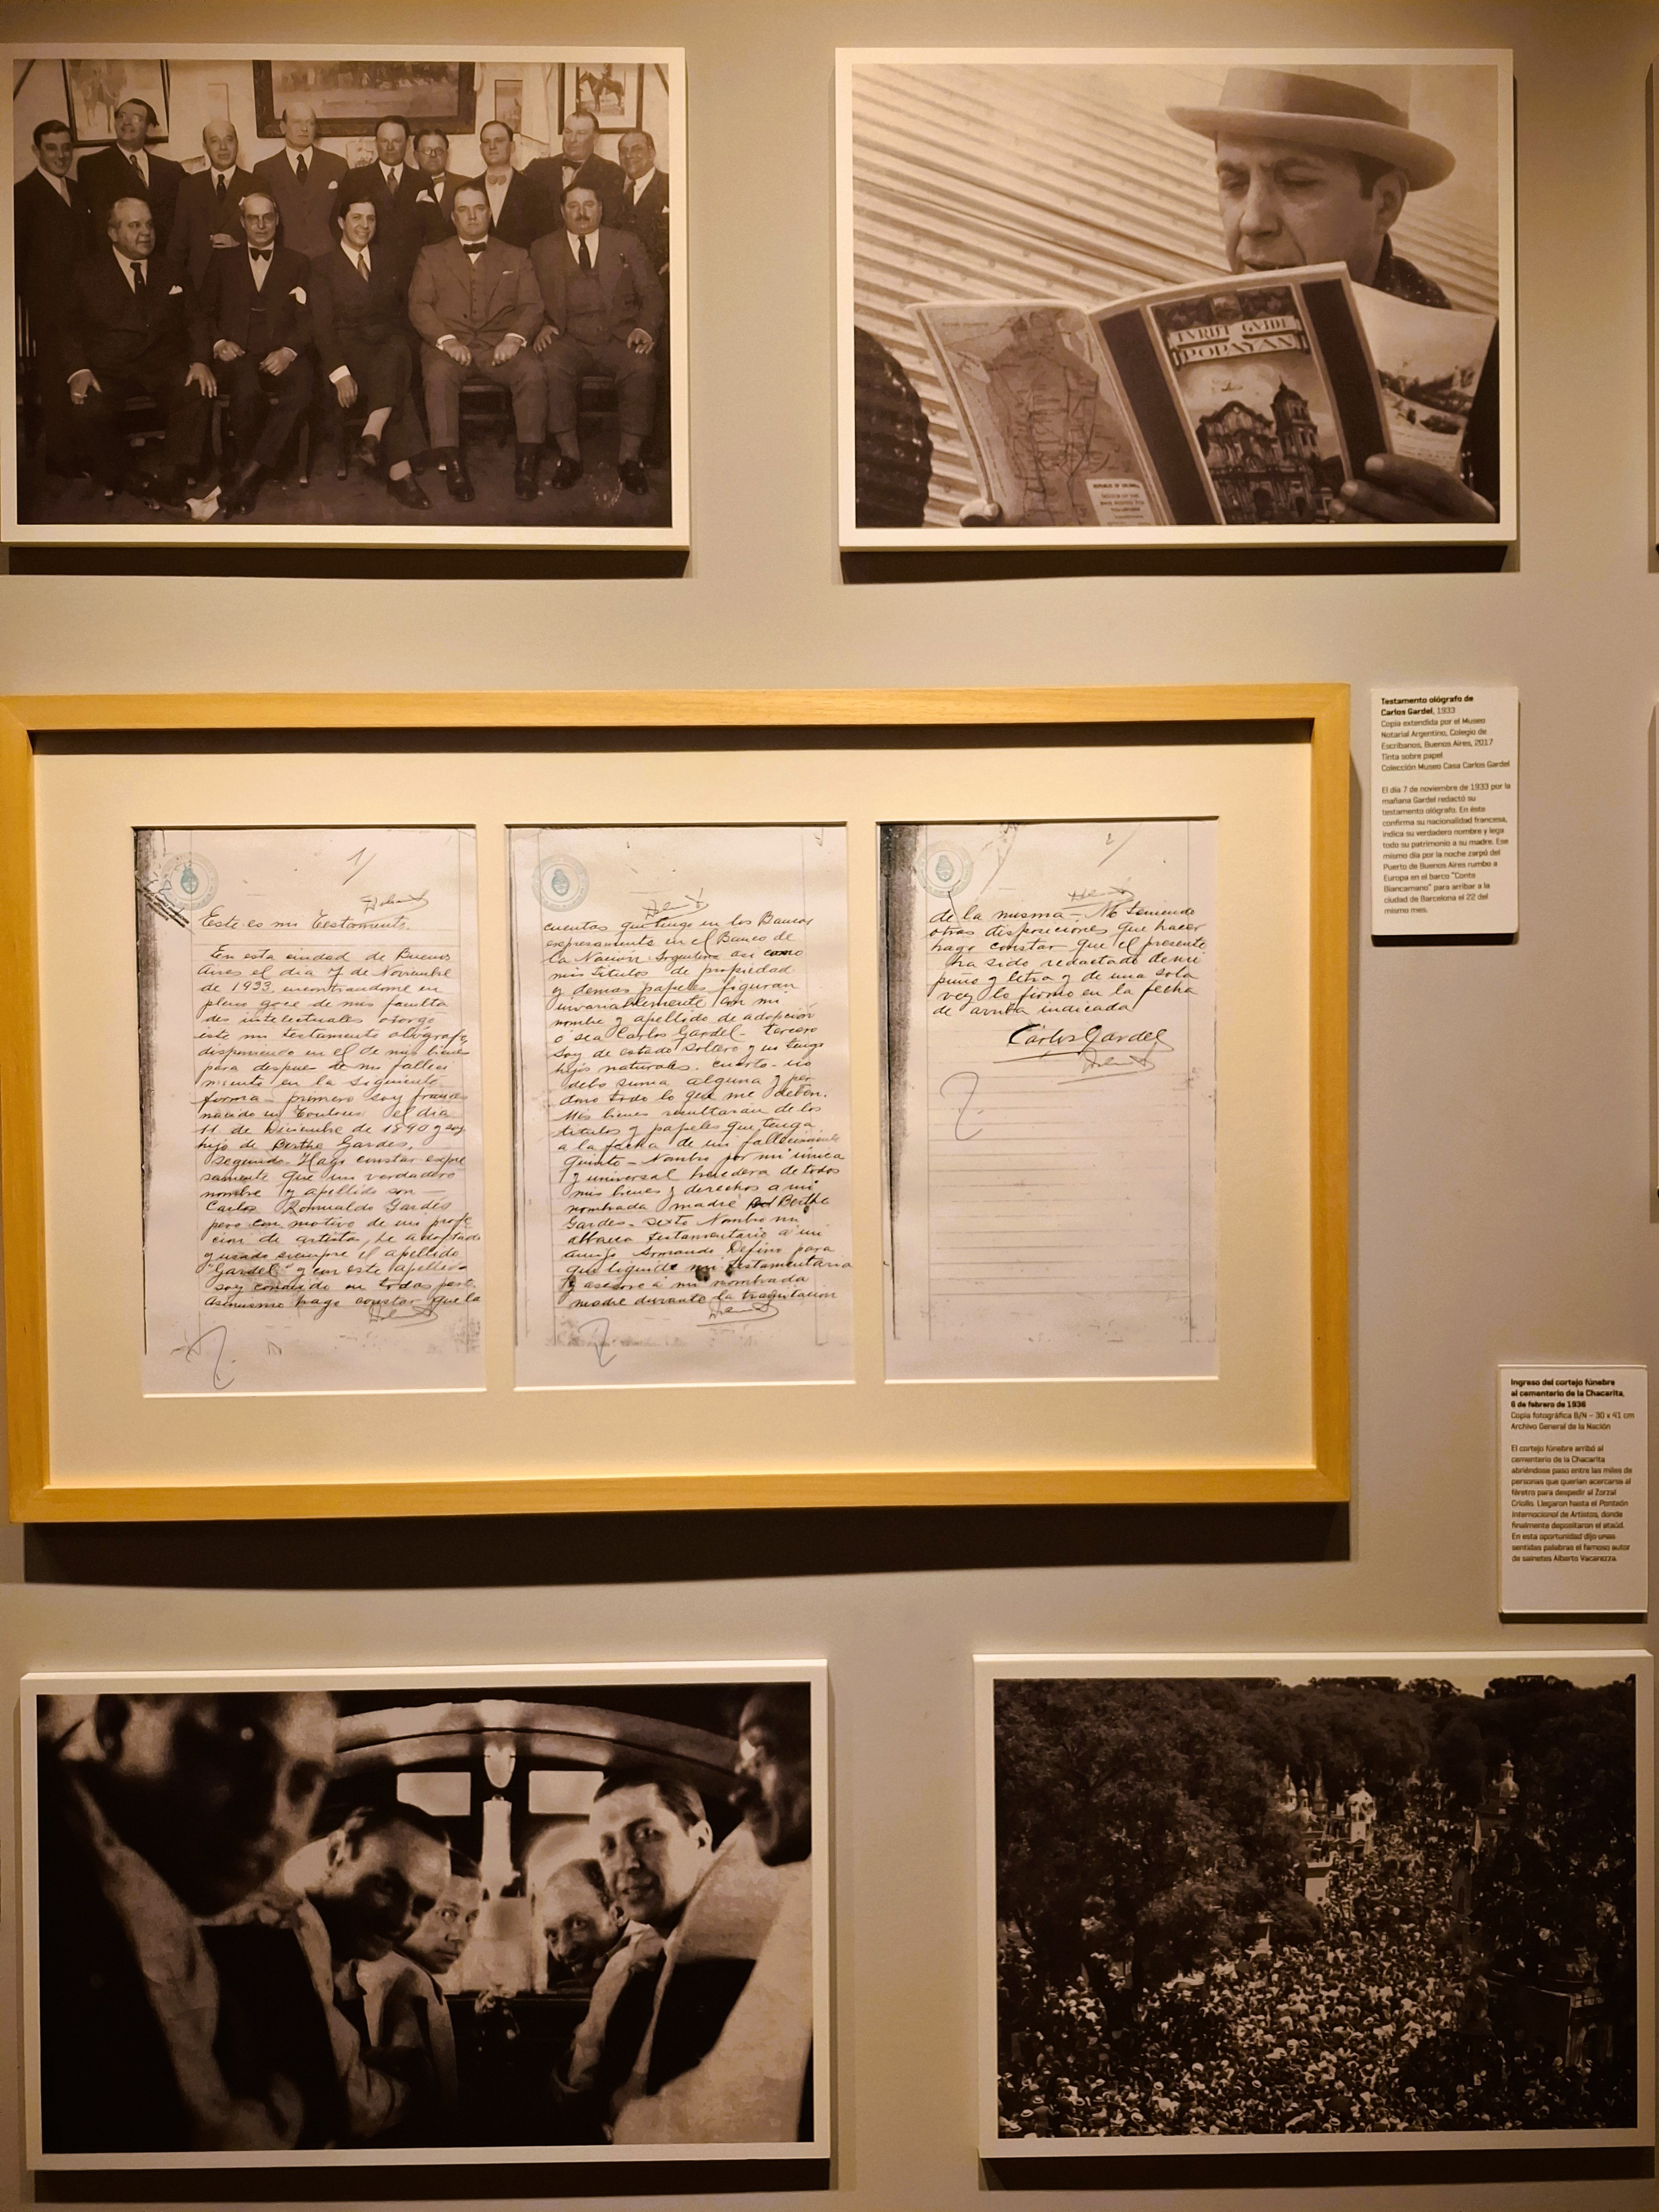 TVRIST GVIDE
POPAYAN
Testamento ológrafo de
Carlos Gardel, 1933
Copia extendida por el Museo
Notarial Argentino, Colegio de
Escribanos, Buenos Aires, 2017
Tinta sobre papel
Colección Museo Casa Carlos Gardel
El día 7 de noviembre de 1933 por la
mañana Gardel redactó su
testamento ológrafo. En éste
confirma su nacionalidad francesa,
indica su verdadero nombre y lega
todo su patrimonio a su madre. Ese
mismo día por la noche zarpó del
Puerto de Buenos Aires rumbo a
Europa en el barco "Conte
Biancamano" para arribar a la
ciudad de Barcelona el 22 del
mismo mes.
1/
Este es mi Testamento.
En esta ciudad de Buenos
Aires el dia 7 de Noviembre
de 1933, encontrandome en
pleno goce de mis faculta
des intelectuales otorgo
este mi testamento ológrafo
disponiendo en el de mis bienes
para despues de mi falleci
miento en la siguiente
forma - primero soy frances
nacido en Toulouse el dia
11 de Diciembre de 1890 y soy
hijo de Berthe Gardes.
Segundo - Hago constar expre
samente que mi verdadero
nombre y apellido son -
Carlos Romualdo Gardes
pero con motivo de mi profe
cion de artista, he adoptado
y usado siempre el apellido
"Gardel" y con este apellido
soy conocido en todas partes.
Asimismo hago constar que la
cuentas que tengo en los Bancos
expresamente en el Banco de
la Nación Argentina asi como
mis titulos de propiedad
y demas papeles figuran
invariablemente con mi
nombre y apellido de adopción
ó sea Carlos Gardel - tercero
soy de estado soltero y no tengo
hijos naturales. Cuarto - no
debo suma alguna y per
dono todo lo que me deben.
Mis bienes resultarán de los
titulos y papeles que tenga
a la fecha de mi fallecimiento
Quinto - Nombro por mi única
y universal heredera de todos
mis bienes y derechos a mi
nombrada madre Berthe
Gardes - Sexto Nombro mi
albacea testamentario a mi
amigo Armando Defino para
que liquide mi testamentaria
y asesore á mi nombrada
madre durante la tramitacion
2/
de la misma - No teniendo
otras disposiciones que hacer
hago constar que el presente
ha sido redactado de mi
puño y letra y de una sola
vez lo firmo en la fecha
de arriba indicada
Carlos Gardel
Ingreso del cortejo fúnebre
al cementerio de la Chacarita,
6 de febrero de 1936
Copia fotográfica B/N – 30 x 41 cm
Archivo General de la Nación
El cortejo fúnebre arribó al
cementerio de la Chacarita
abriéndose paso entre las miles de
personas que querían acercarse al
féretro para despedir al Zorzal
Criollo. Llegaron hasta el Panteón
Internacional de Artistas, donde
finalmente depositaron el ataúd.
En esta oportunidad dijo unas
sentidas palabras el famoso autor
de sainetes Alberto Vacarezza.